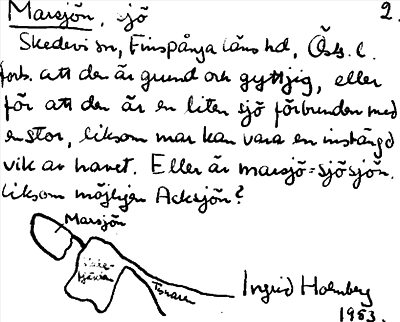 Marsjön, sjö 2.
Skedevi sn, Finspånga läns hd, Östg. l.
förb. att den är grund och gyttjig, eller
för att den är en liten sjö förbunden med
en stor, liksom mar kan vara en instängd
vik av havet. Eller är marsjö = sjösjön.
liksom möjligen Acksjön?
Marsjön
Tisnare
Ingrid Holmberg
1953.